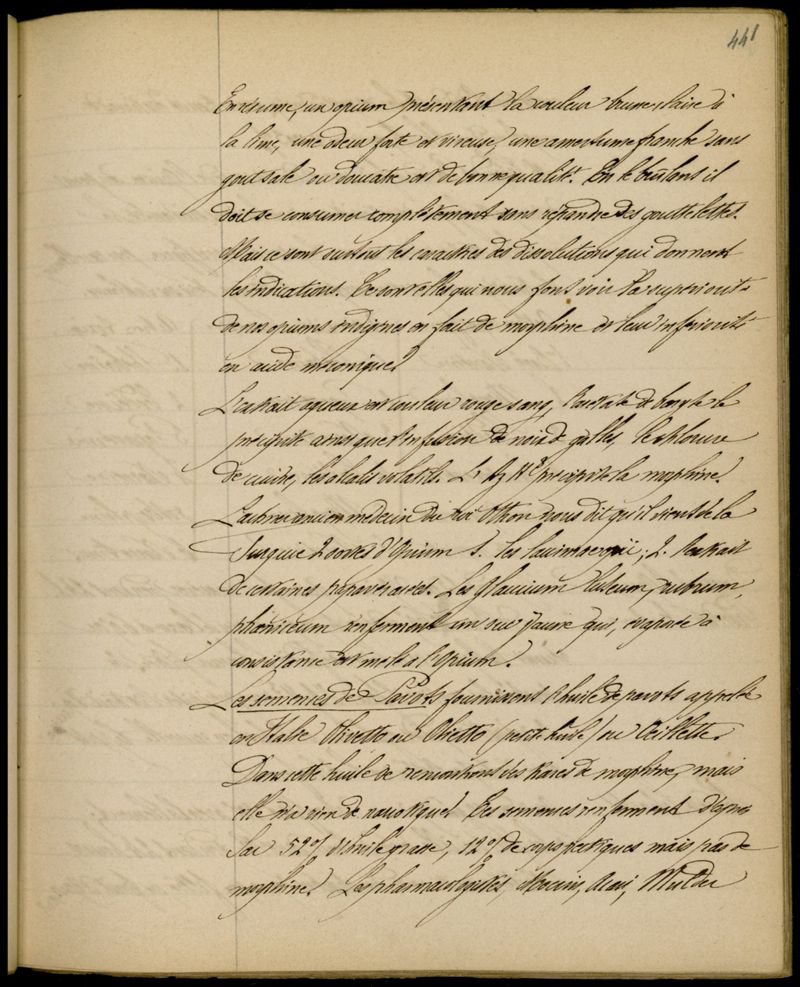 441
En résumé, un opium présentant la couleur brune, claire à
la lime, une odeur forte et vireuse, une amertume franche sans
gout salé ou douceâtre est de bonne qualité. En le brûlant il
doit se consumer complètement sans répandre des gouttelettes.
Mais ce sont surtout les caractères des dissolutions qui donnent
les indications. Ce sont elles qui nous font voir la supériorité
de nos opiums indigènes en fait de morphine et leur infériorité
en acide méconique.
L'extrait aqueux est couleur rouge sang, l'acétate de baryte le
précipite ainsi que l'infusion de noix de galles, le chlorure
de cuivre, les alcalis volatils. L' Az H³ précipite la morphine.
ancien médecin du roi Othon nous dit qu'il vient de la
Turquie 2 sortes d'Opium 1. les ; 2. l'extrait
de certaines papavéracées. Les Glaucium luteum, rubrum,
phoeniceum renferment un suc jaune qui, évaporé à
consistance est mêlé à l'Opium.
Les semences de Pavots fournissent l'huile de pavots appelée
en Italie Olivetto ou Olietto (petite huile) ou Oeillette.
Dans cette huile se remontrent des traces de morphine, mais
elle n'a rien de narcotique. Les semences renferment d'après
Sac 52% d'huile grasse, 12% de corps pectiques mais pas de
morphine. Les pharmacologistes, Accarie, , Mulder